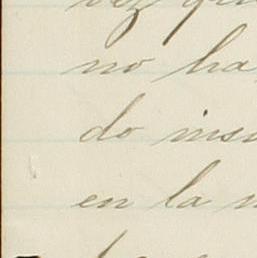 vez que
no ha
do insu
en la